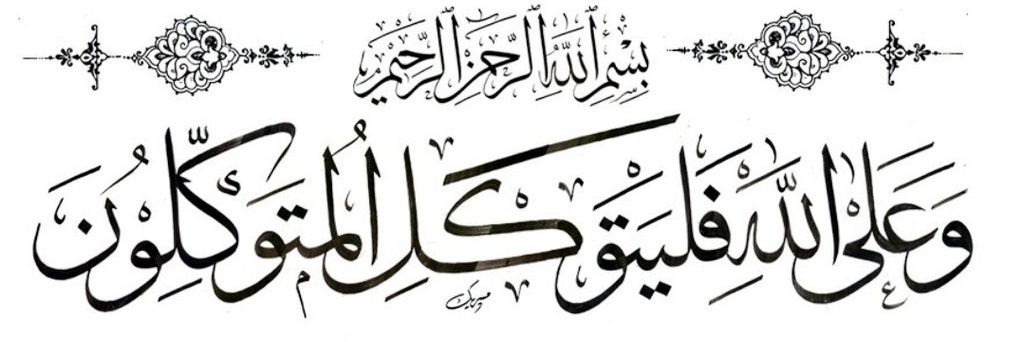 بِسْمِ ٱللَّهِ ٱلرَّحْمَٰنِ ٱلرَّحِيمِ
وَعَلَى اللَّهِ فَلْيَتَوَكَّلِ الْمُتَوَكِّلُونَ